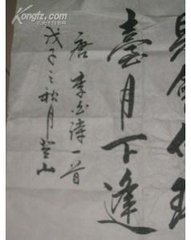 Kongfz.com
臺月下逢
唐 李白诗一首
戊子之秋月
山